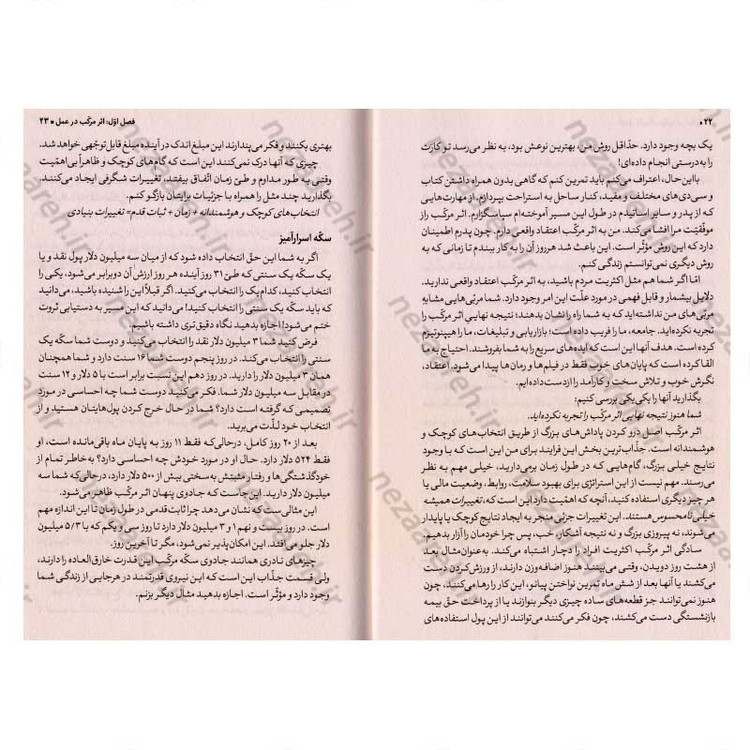 ۲۲ •
یک بچه وجود دارد. حدّاقل روش من، بهترین نوعش بود، به نظر می‌رسد تو کارت
را به‌درستی انجام داده‌ای!
بااین‌حال، اعتراف می‌کنم باید تمرین کنم که گاهی بدون همراه داشتن کتاب
و سی‌دی‌های مختلف و مفید، کنار ساحل به استراحت بپردازم. از مهارت‌هایی
که از پدر و سایر اساتیدم در طول این مسیر آموخته‌ام سپاسگزارم. اثر مرکّب راز
موفّقیّت مرا افشا می‌کند. من به اثر مرکّب اعتقاد واقعی دارم. چون پدرم اطمینان
دارد که این روش مؤثّر است. این باعث شد هرروز آن را به کار ببندم تا زمانی که به
روش دیگری نمی‌توانستم زندگی کنم.
امّا اگر شما هم مثل اکثریت مردم باشید، به اثر مرکّب اعتقاد واقعی ندارید.
دلایل بیشمار و قابل فهمی در مورد علّت این امر وجود دارد. شما مربّی‌هایی مشابهِ
مربّی‌های من نداشته‌اید که به شما راه را نشان بدهند؛ نتیجه نهایی اثر مرکّب را
تجربه نکرده‌اید. جامعه، ما را فریب داده است؛ بازاریابی و تبلیغات، ما را هیپنوتیزم
کرده است. هدف آنها این است که ایده‌های سریع را به شما بفروشند. احتیاج به ما
القا کرده است که پایان‌های خوب فقط در فیلم‌ها و رمان‌ها پیدا می‌شود. اعتقاد،
نگرش خوب و تلاش سخت و کارآمد را از دست داده‌ایم.
بگذارید آنها را یکی‌یکی بررسی کنیم:
شما هنوز نتیجه نهایی اثر مرکّب را تجربه نکرده‌اید.
اثر مرکّب اصل درو کردن پاداش‌های بزرگ از طریق انتخاب‌های کوچک و
هوشمندانه است. جذّاب‌ترین بخش این فرایند برای من این است که باوجود
نتایج خیلی بزرگ، گام‌هایی که در طول زمان برمی‌دارید، خیلی مهم به نظر
نمی‌رسند. مهم نیست از این استراتژی برای بهبود سلامت، روابط، وضعیت مالی یا
هر چیز دیگری استفاده کنید، آنچه که اهمّیّت دارد این است که، تغییرات همیشه
خیلی نامحسوس هستند. این تغییرات جزئی منجر به ایجاد نتایج کوچک یا پایدار
می‌شوند، نه پیروزی بزرگ و نه نتیجه آشکار. خب، پس چرا خودمان را آزار بدهیم.
سادگی اثر مرکّب اکثریت افراد را دچار اشتباه می‌کند. به‌عنوان‌مثال بعد
از هشت روز دویدن، وقتی می‌بینند هنوز اضافه‌وزن دارند، از ورزش‌کردن دست
می‌کشند یا آنها بعد از شش ماه تمرین نواختن پیانو، این کار را رها می‌کنند، چون
هنوز نمی‌توانند جز قطعه‌های ساده چیزی دیگر بنوازند یا از پرداخت حقّ بیمه
بازنشستگی دست می‌کشند، چون فکر می‌کنند می‌توانند از این پول استفاده‌های
فصل اوّل: اثر مرکّب در عمل • ۲۳
بهتری بکنند و فکر می‌پندارند این مبلغ اندک در آینده مبلغ قابل توجّهی خواهد شد.
چیزی که آنها درک نمی‌کنند این است که گام‌های کوچک و ظاهراً بی‌اهمّیّت
وقتی به طور مداوم و طیّ زمان اتّفاق بیفتد، تغییرات شگرفی ایجاد می‌کنند.
اجازه بدهید چند مثل را همراه با جزئیات برایتان بازگو کنم.
انتخاب‌های کوچک و هوشمندانه + زمان + ثبات قدم= تغییرات بنیادی
سکّه اسرارآمیز
اگر به شما این حقّ انتخاب داده شود که از میان سه میلیون دلار پول نقد و یا
یک سکّه یک سنتی که طیّ ۳۱ روز آینده، هر روز ارزش آن دوبرابر می‌شود، یکی را
انتخاب کنید، کدام یک را انتخاب می‌کنید. اگر قبلاً این را شنیده باشید، می‌دانید
که باید سکّه یک سنتی را انتخاب کنید! می‌دانید که این مسیر به دستیابی ثروت
ختم می‌شود! اجازه بدهید نگاه دقیق‌تری داشته باشیم.
فرض کنید شما ۳ میلیون دلار نقد را انتخاب می‌کنید و دوست شما سکّه یک
سنتی را انتخاب می‌کند. در روز پنجم دوست شما ۱۶ سنت دارد و شما همچنان
همان ۳ میلیون دلار را دارید. در روز دهم این نسبت برابر است با ۵ دلار و ۱۲ سنت
در مقابل سه میلیون دلار شما. فکر می‌کنید دوست شما چه احساسی در مورد
تصمیمی که گرفته است دارد؟ شما در حال خرج کردن پول‌هایتان هستید و از
انتخاب خود لذّت می‌برید.
بعد از ۲۰ روز کامل، درحالی‌که فقط ۱۱ روز به پایان ماه باقی‌مانده است، او
فقط ۵۲۴ دلار دارد. حال او در مورد خودش چه احساسی دارد؟ به‌خاطر تمام از
خودگذشتگی‌ها و رفتار مثبتش به‌سختی بیش از ۵۰۰ دلار دارد، درحالی‌که شما سه
میلیون دلار دارید. این جاست که جادوی پنهان اثر مرکّب ظاهر می‌شود.
این مثالی ست که نشان می‌دهد چرا ثبات‌قدم در طول زمان تا این اندازه مهم
است. در روز بیست و نهم ۱ و ۳ میلیون دلار دارد تا روز سی و یکم که با ۵/۳ میلیون
دلار جلو می‌افتد. این امکان‌پذیر نمی‌شود، مگر تا آخرین روز.
چیزهای نادری همانند جادوی سکّه مرکّب این قدرت خارق‌العاده را دارند،
ولی قسمت جذّاب این است که این نیروی قدرتمند در هرجایی از زندگی شما
وجود دارد و مؤثّر است. اجازه بدهید مثال دیگر بزنم.
nezaareh.ir